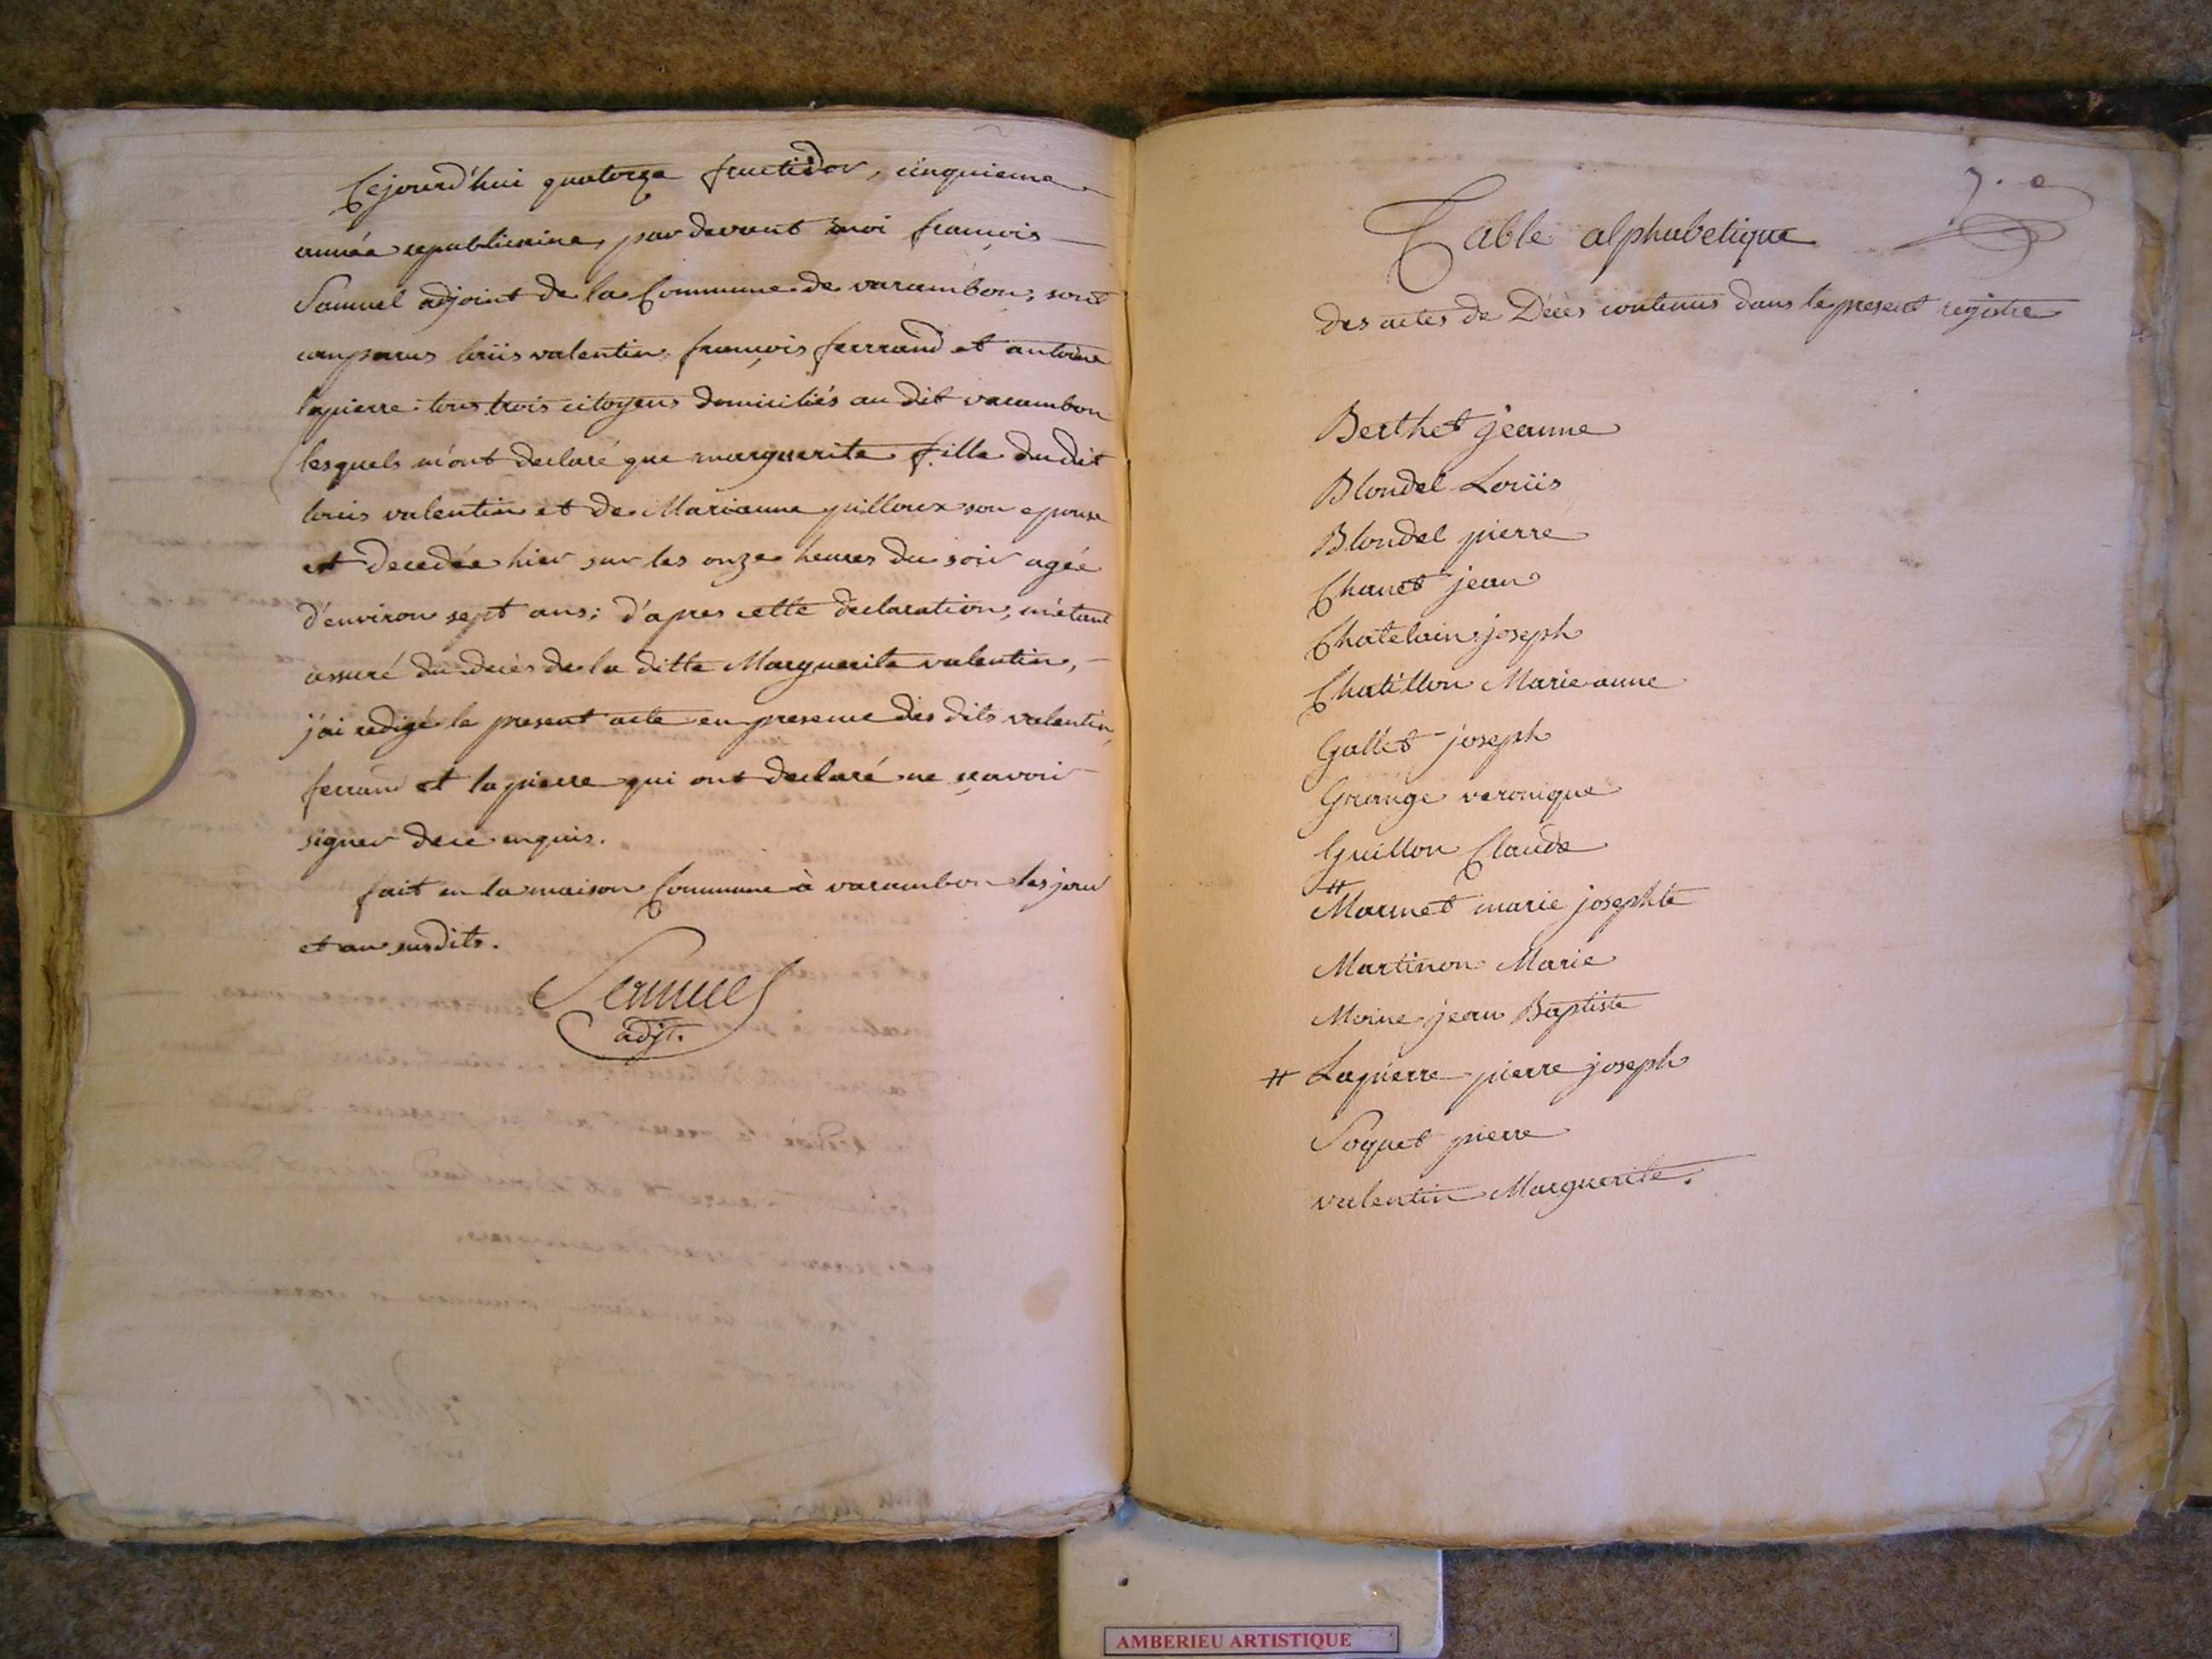 Cejourd'hui quatorze fructidor, cinquieme
année republicaine, par devant moi françois
Samuel adjoint de la Commune de varambon, sont
comparus loüis valentin, françois ferrand et antoine
lapierre tous trois citoyens domiciliés au dit varambon
lesquels m'ont declaré que marguerite fille du dit
loüis valentin et de Marianne guilloux son epouse
est decedée hier sur les onze heures du soir agée
d'environ sept ans; d'apres cette declaration, m'étant
assuré du decès de la ditte Marguerite valentin,
j'ai redigé le present acte en presence des dits valentin,
ferrand et lapierre qui ont declaré ne sçavoir
signer de ce enquis.
fait en la maison Commune à varambon les jour
et an susdits.
Samuel
adjt.
Table alphabetique
des actes de Décès contenus dans le present registre
Berthet jeanne
Blondel Loüis
Blondel pierre
Chanet jean
Chatelain joseph
Chatillon Marie anne
Gallet joseph
Grange veronique
Guillon Claude
#
Marmet marie josephte
Martinon Marie
Moine jean Baptiste
# Lapierre pierre joseph
Soquet pierre
valentin Marguerite.
AMBERIEU ARTISTIQUE